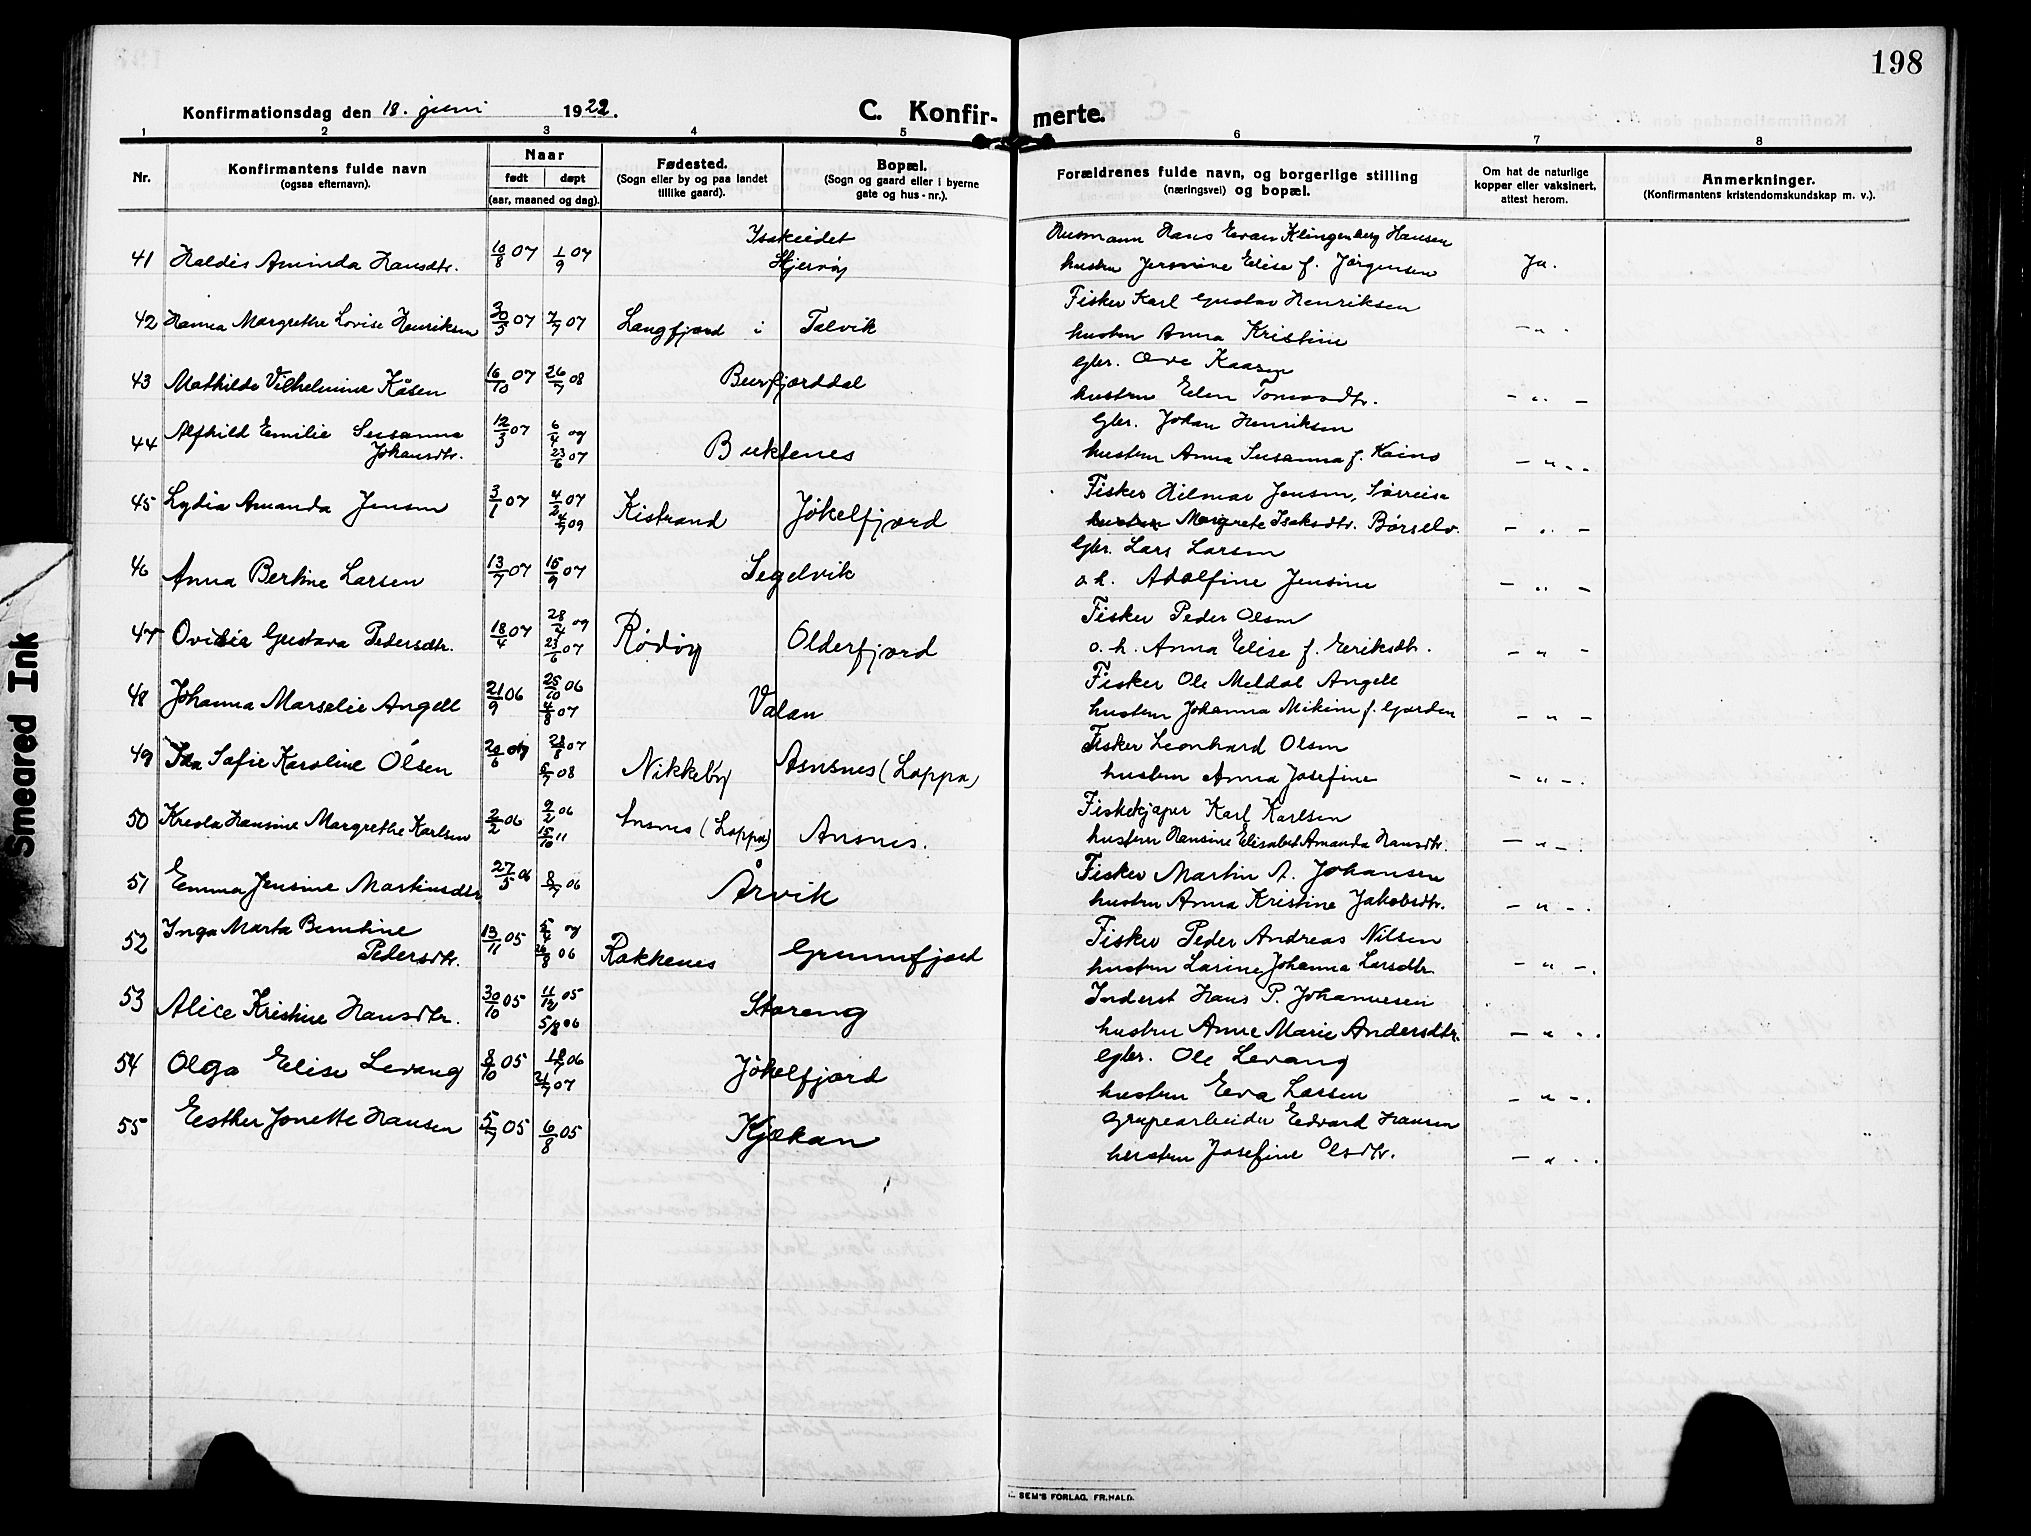 198
Konfirmationsdag den 18. juni 1922.
C. Konfirmerte.
1 2 3 4 5 6 7 8
Nr.
Konfirmantens fulde navn
(ogsaa efternavn).
Naar
født døpt
(aar, maaned og dag).
Fødested.
(Sogn eller by og paa landet
tillike gaard).
Bopæl.
(Sogn og gaard eller i byerne
gate og hus-nr.).
Forældrenes fulde navn, og borgerlige stilling
(næringsvei) og bopæl.
Om hat de naturlige
kopper eller vaksinert,
attest herom.
Anmerkninger.
(Konfirmantens kristendomskundskap m. v.).
Isakeidet Husmann Hans Evan Klingenberg Hansen
41 Haldis Aminda Hansdtr. 10/8 07 1/9 07 Skjervøy hustru Jensine Elise f. Jørgensen Ja.
Fisker Karl Gustav Henriksen
42 Hanna Margrethe Lovise Henriksen 30/3 07 7/7 07 Langfjord i Talvik hustru Anna Kristine - " -
gbr. Ove Kaasen
43 Mathilde Vilhelmine Kåsen 16/10 07 26/7 08 Burfjorddal hustru Elen Tomasdtr. - " -
Gbr. Johan Henriksen
44 Alfhild Emilie Susanna Johansdtr. 12/3 07 6/4 07 23/6 07 Buktenes hustru Anna Susanna f. Kaino - " -
Fisker Hilmar Jensen, Sørreisa
45 Lydia Amanda Jensen 3/1 07 4/2 07 4/7 09 Kistrand Jøkelfjord hustru Margrete Isaksdtr. Børselv. - " -
Gbr. Lars Larsen
46 Anna Bertine Larsen 13/7 07 15/9 07 Segelvik o.h. Adolfine Jensine - " -
Fisker Peder Olsen
47 Ovidia Gustava Pedersdtr. 18/4 07 28/4 07 23/6 07 Rødøy Olderfjord o.h. Anna Elise f. Eriksdtr. - " -
Fisker Ole Meldal Angell
48 Johanna Marselie Angell 21/9 06 25/10 06 4/8 07 Valan hustru Johanna Mikine f. Garden - " -
Fisker Leonhard Olsen
49 Ida Sofie Karoline Olsen 20/6 07 28/8 07 5/7 08 Nikkeby Asnsnes (Loppa) hustru Anna Josefine - " -
Fiskekjøper Karl Karlsen
50 Hansine Margrethe Karlsen 2/2 06 2/2 06 15/10 11 Ansnes (Loppa) Ansnes. hustru Hansine Elisabet Amanda Hansdtr. - " -
Fisker Martin A. Johansen
51 Emma Jensine Martinsdtr 27/5 06 8/7 06 Årvik hustru Anna Kristine Jakobsdtr. - " -
Fisker Peder Andreas Nilsen
52 Inga Marta Berntine Pedersdtr. 13/11 05 26/8 06 Rakkenes Grunnfjord hustru Larine Johanna Larsdtr. - " -
Inderst Hans P. Johannesen
53 Alice Kristine Hansdtr. 30/10 05 11/12 05 5/8 06 Storeng hustru Anne Marie Andersdtr. - " -
gbr. Ole Levang
54 Olga Elise Levang 8/10 05 18/7 06 21/7 07 Jøkelfjord hustru Eva Larsen - " -
Grupearbeider Edvard Hansen
55 Esther Jonette Hansen 5/7 05 6/8 05 Kjækan hustru Josefine Olsdtr. - " -
SEM'S FORLAG, FR.HALD.
Smeared Ink